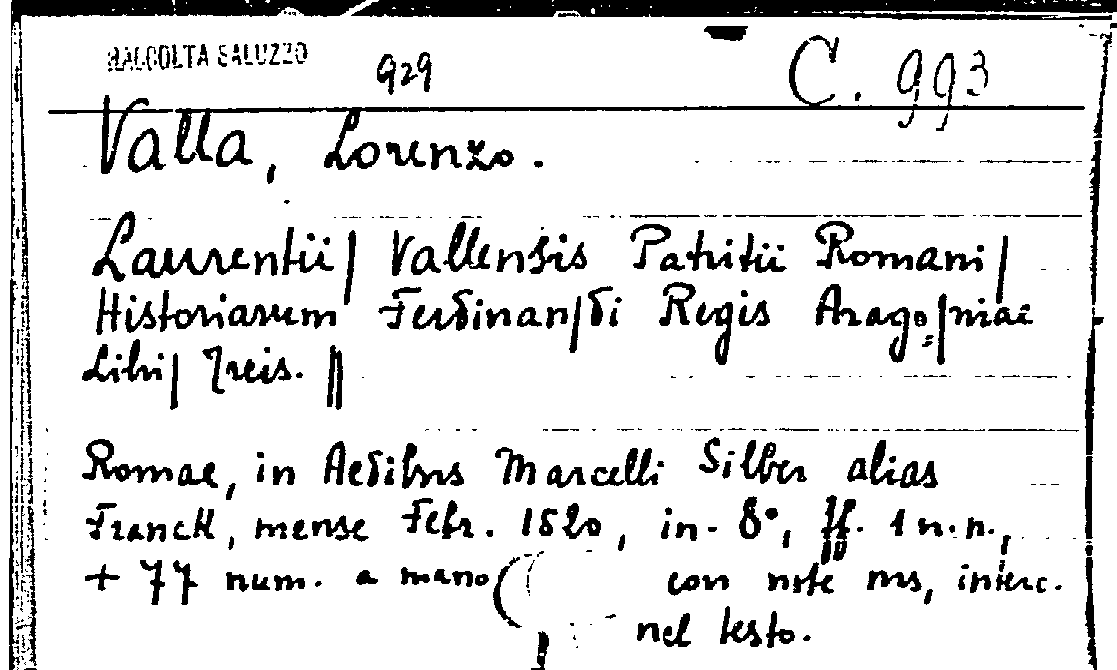 RACCOLTA SALUZZO 929 C. 993
Valla, Lorenzo.
Laurentii| Vallensis Patritii Romani|
Historiarum Ferdinan|di Regis Arago=|niae
Libri| Treis. ||
Romae, in Aedibus Marcelli Silber alias
Franck, mense Febr. 1520, in-8°, ff. 1 n.n.,
+ 77 num. a mano con note ms, interc.
nel testo.